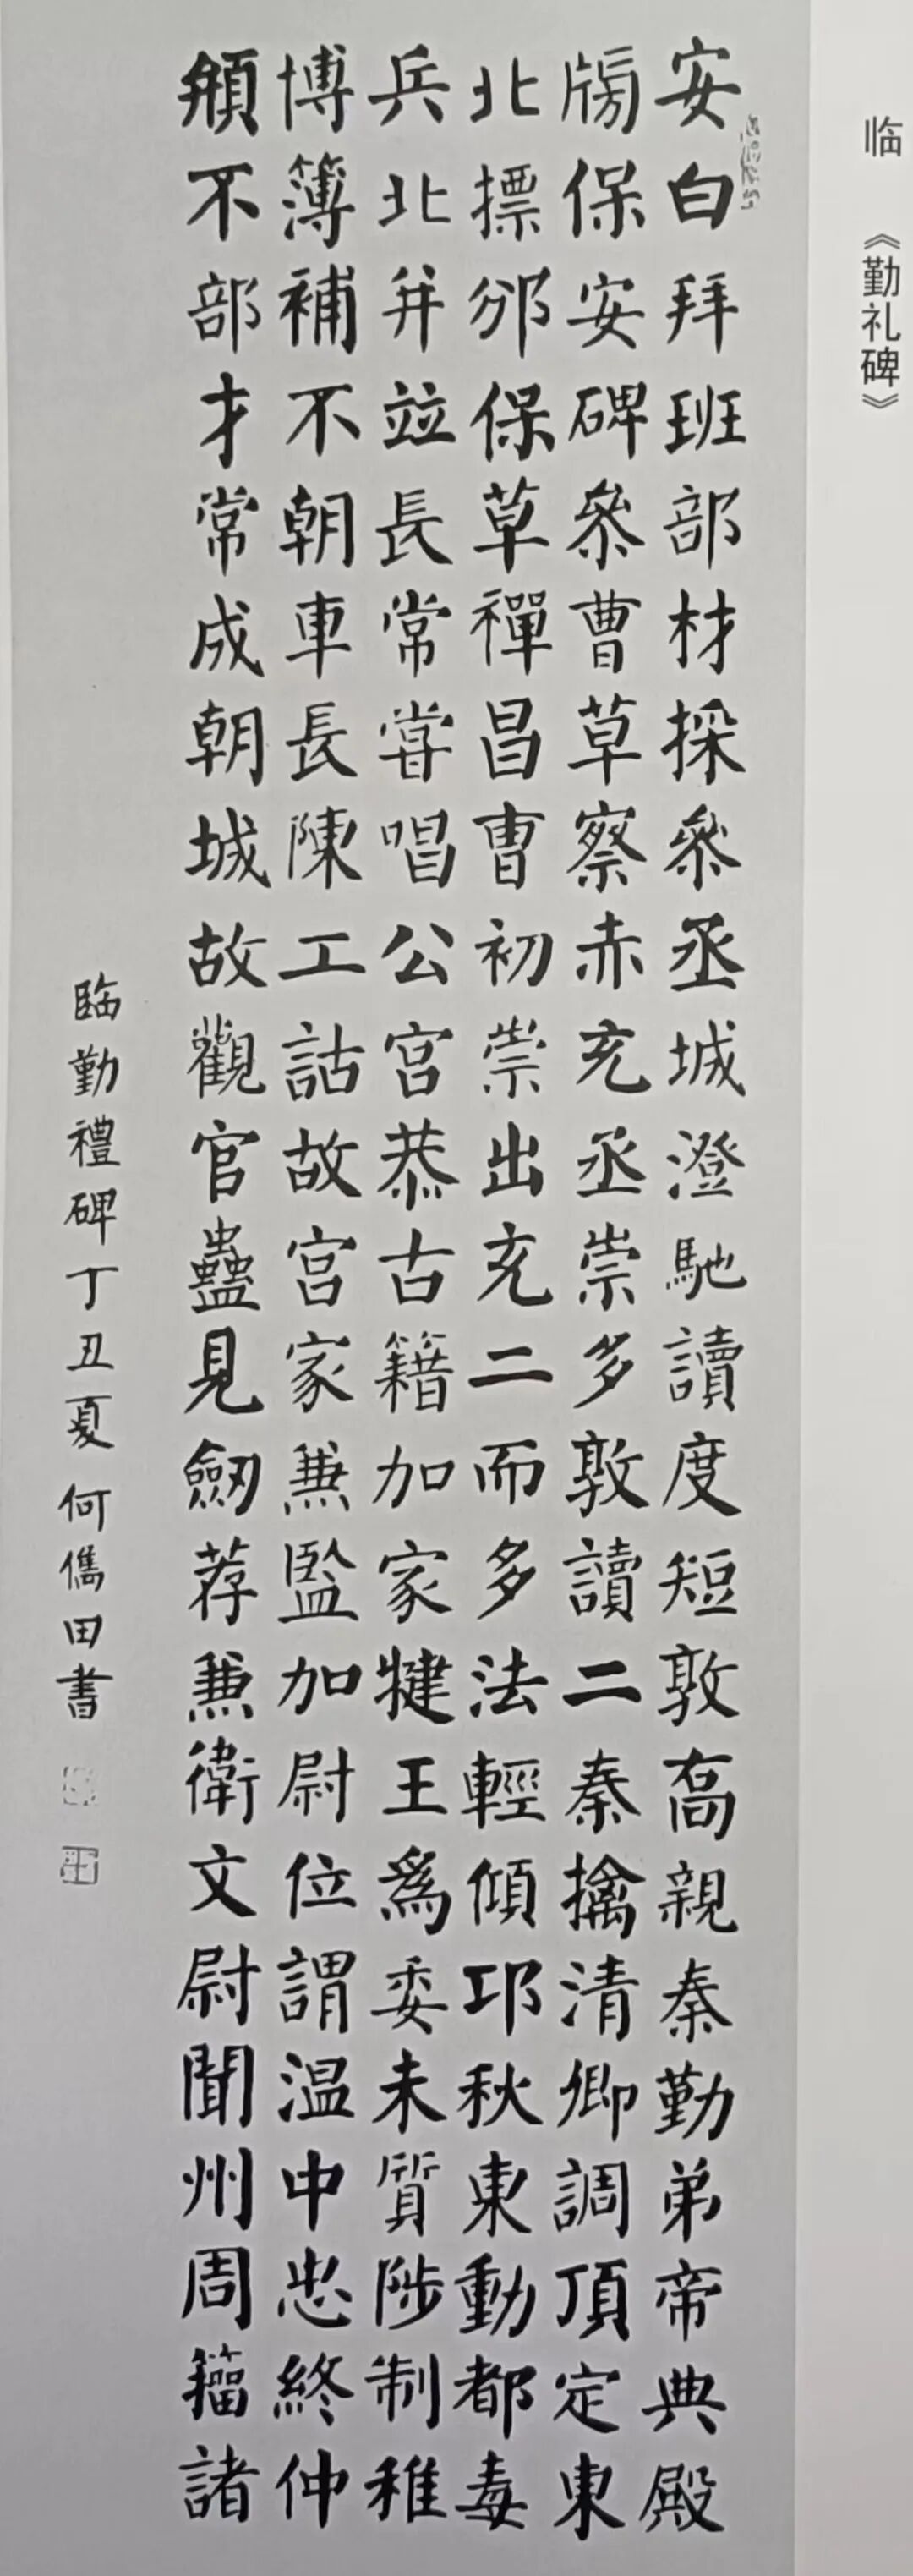 临 《勤礼碑》
安白拜班部材採叅丞城澄馳讀度短敦高親秦勤弟帝典殿
牓保安碑叅曹草察赤充丞崇多敦讀二秦擒清卿調頂定東
北摽邠保草禪昌曹初崇出充二而多法輕傾邛秋東動都毒
兵北并竝長常甞唱公宫恭古籍加家犍王爲委未質陟制稚
博簿補不朝車長陳工詁故宫家兼監加尉位謂温中忠終仲
頯不部才常成朝城故觀官蠱見劒荐兼衛文尉聞州周籕諸
臨勤禮碑丁丑夏何儁田書